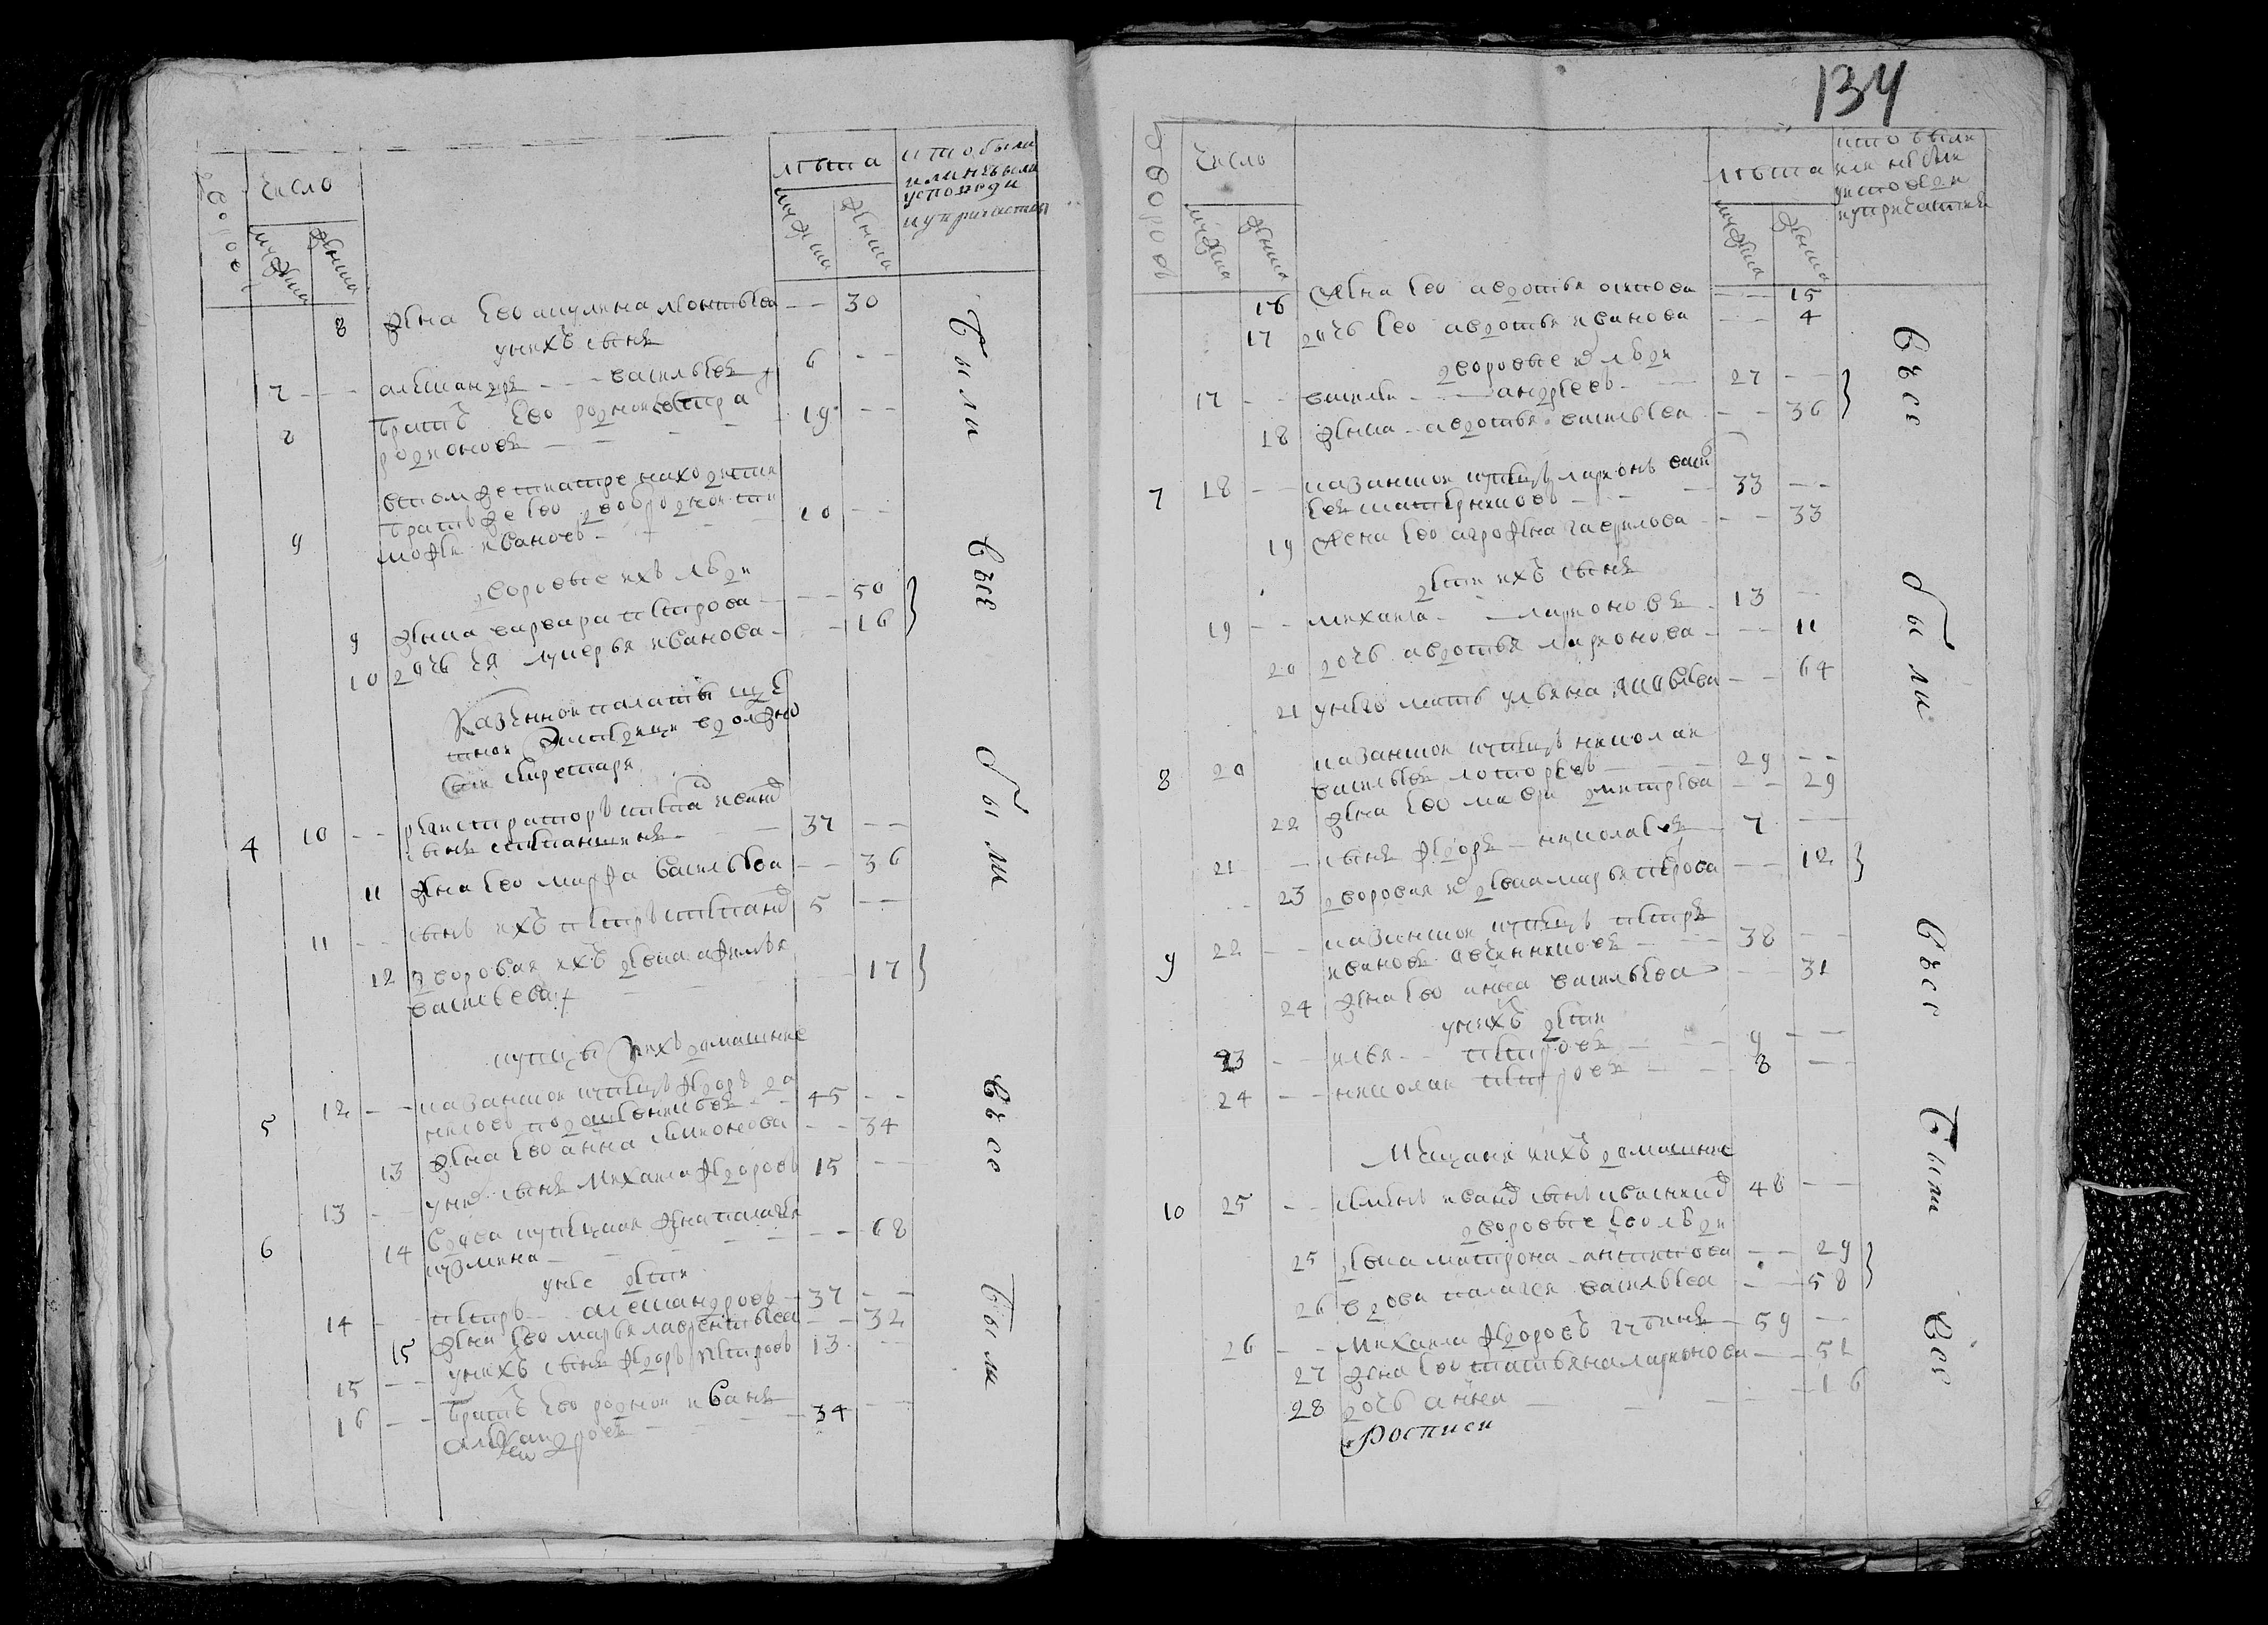 дворовъ
число
мужеска
женска
лѣта
мужеска
женска
кто были
или не были
у исповеди
и у причастия
8 жена ево акулина леонтьева - - 30
у нихъ сынъ
7 - - александръ - - васильевъ 6 - -
8 братъ ево родной петръ
родионовъ - - 19 - -
в том же театре находится
братъ же ево двоюродной ти
9 мофей ивановъ - 20 - -
дворовые ихъ люди
9 женка варвара петрова - - 50
10 дочь ея лукерья иванова - - 16
Казенной палаты
секретарь
4 10 - - регистраторъ степанъ ивановъ
сынъ степановъ - 37 - -
11 жена ево марфа васильева - - 36
11 - - сынъ ихъ петръ степановъ 5 - -
12 дворовая ихъ девка афимья
васильева - - 17
купцы и ихъ домашние
5 12 - - казанской купецъ федоръ да
ниловъ - 45 - -
13 жена ево анна симионова - - 34
13 - - у них сынъ михаила федоровъ 15 - -
6 14 вдова купецкая жена палагея
кузмина - - 68
у нее дети
14 - - петръ - александровъ - 37 - -
15 жена ево марья лаврентьева - - 32
15 - - у нихъ сынъ федоръ петровъ 13 - -
16 - - братъ ево родной иванъ
александровъ - 34 - -
были
все
были
все
были
134
дворовъ
число
мужеска
женска
лѣта
мужеска
женска
кто были
или не были
у исповеди
и у причастия
16 жена ево авдотья осипова - - 15
17 дочь ево авдотья иванова - - 4
дворовые ево люди
17 - - василей - андреевъ - 27 - -
18 женка авдотья васильева - - 36
7 18 - - казанской купецъ ларионъ васи
льевъ - 33 - -
19 жена ево агрофена гаврилова - - 33
дети ихъ сынъ
19 - - михаила - ларионовъ - 13 - -
20 дочь авдотья ларионова - - 11
21 у него мать ульяна яковлева - - 64
8 20 казанской купецъ николай
васильевъ - 29 - -
22 жена ево мавра дмитрева - - 29
21 - сынъ федоръ - николаевъ - 7 - -
23 дворовая ево девка марья петрова - - 12
9 22 - - казанской купецъ петръ
ивановъ овчинниковъ - 38 - -
24 жена ево анна васильева - 31
у нихъ дети
23 - - илья - петровъ - 9 - -
24 - - николай петровъ - 8 - -
Мещане и ихъ домашние
10 25 - - семенъ ивановъ сынъ 48 - -
дворовые ево люди
25 девка матрона антипова - - 29
26 вдова палагея васильева - - 58
26 - - михаила федоровъ - 59 - -
27 жена ево татьяна ларионова - - 51
28 дочь анна - - 16
Росписи
все
были
все
были
все